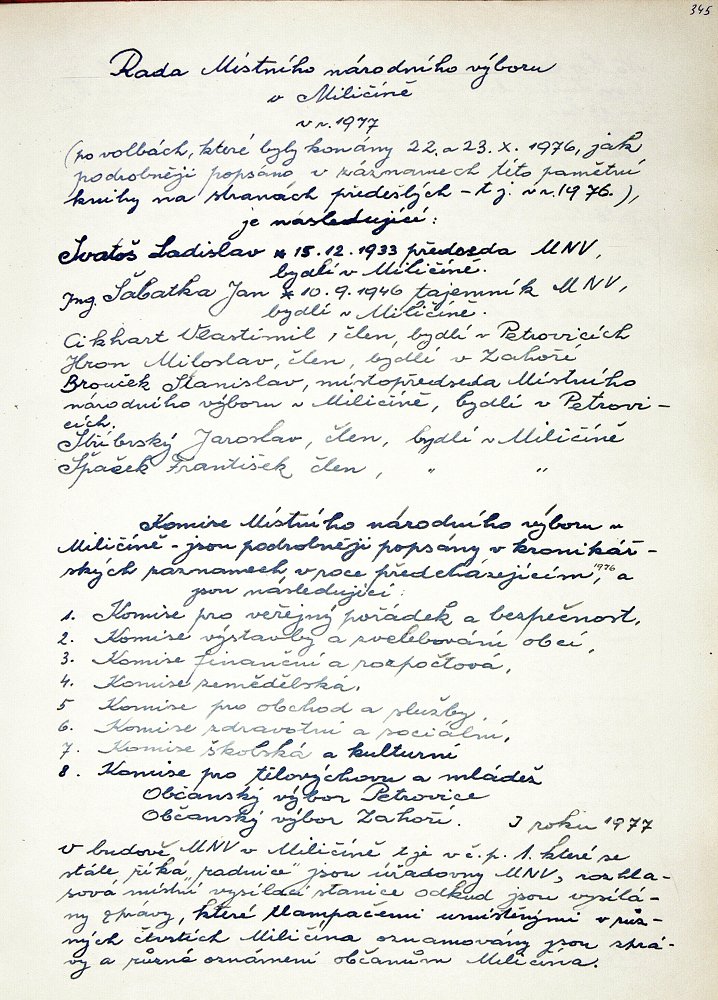 345
Rada Místního národního výboru
v Miličíně
v r. 1977
(po volbách, které byly konány 22. a 23. X. 1976, jak
podrobněji popsáno v záznamech této pamětní
knihy na stranách předešlých - t j. v r. 1976.),
je následující:
Svatoš Ladislav * 15. 12. 1933 předseda MNV,
bydlí v Miličíně.
Ing. Šabatka Jan * 10. 9. 1946 tajemník MNV,
bydlí v Miličíně.
Cikhart Vlastimil, člen, bydlí v Petrovicích
Hron Miloslav, člen, bydlí v Zahoří
Brouček Stanislav, místopředseda Místního
národního výboru v Miličíně, bydlí v Petrovi-
cích.
Stříbrský Jaroslav, člen, bydlí v Miličíně
Špaček František člen, " "
Komise Místního národního výboru v
Miličíně - jsou podrobněji popsány v kronikář-
ských záznamech v roce předcházejícím, 1976 a
jsou následující:
1. Komise pro veřejný pořádek a bezpečnost,
2. Komise výstavby a zvelebování obcí,
3. Komise finanční a rozpočtová,
4. Komise zemědělská,
5 Komise pro obchod a služby,
6. Komise zdravotní a sociální,
7. Komise školská a kulturní
8. Komise pro tělovýchovu a mládež
Občanský výbor Petrovice
Občanský výbor Zahoří. I roku 1977
v budově MNV v Miličíně t je v č. p. 1. které se
stále říká „radnice" jsou úřadovny MNV, rozhla-
sová místní vysílací stanice odkud jsou vysílá-
ny zprávy, které tlampačemi umístěnými v růz-
ných čtvrtích Miličína oznamovány jsou zprá-
vy a různá oznámení občanům Miličína.